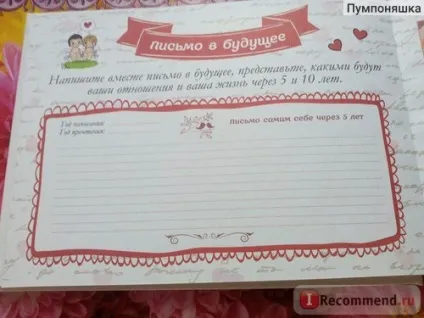 Пумпоняшка
ПИСЬМО В БУДУЩЕЕ
Напишите вместе письмо в будущее, представьте, какими будут
ваши отношения и ваша жизнь через 5 и 10 лет.
Год написания
Год прочтения
ПИСЬМО САМИМ СЕБЕ ЧЕРЕЗ 5 ЛЕТ
I Recommend.ru